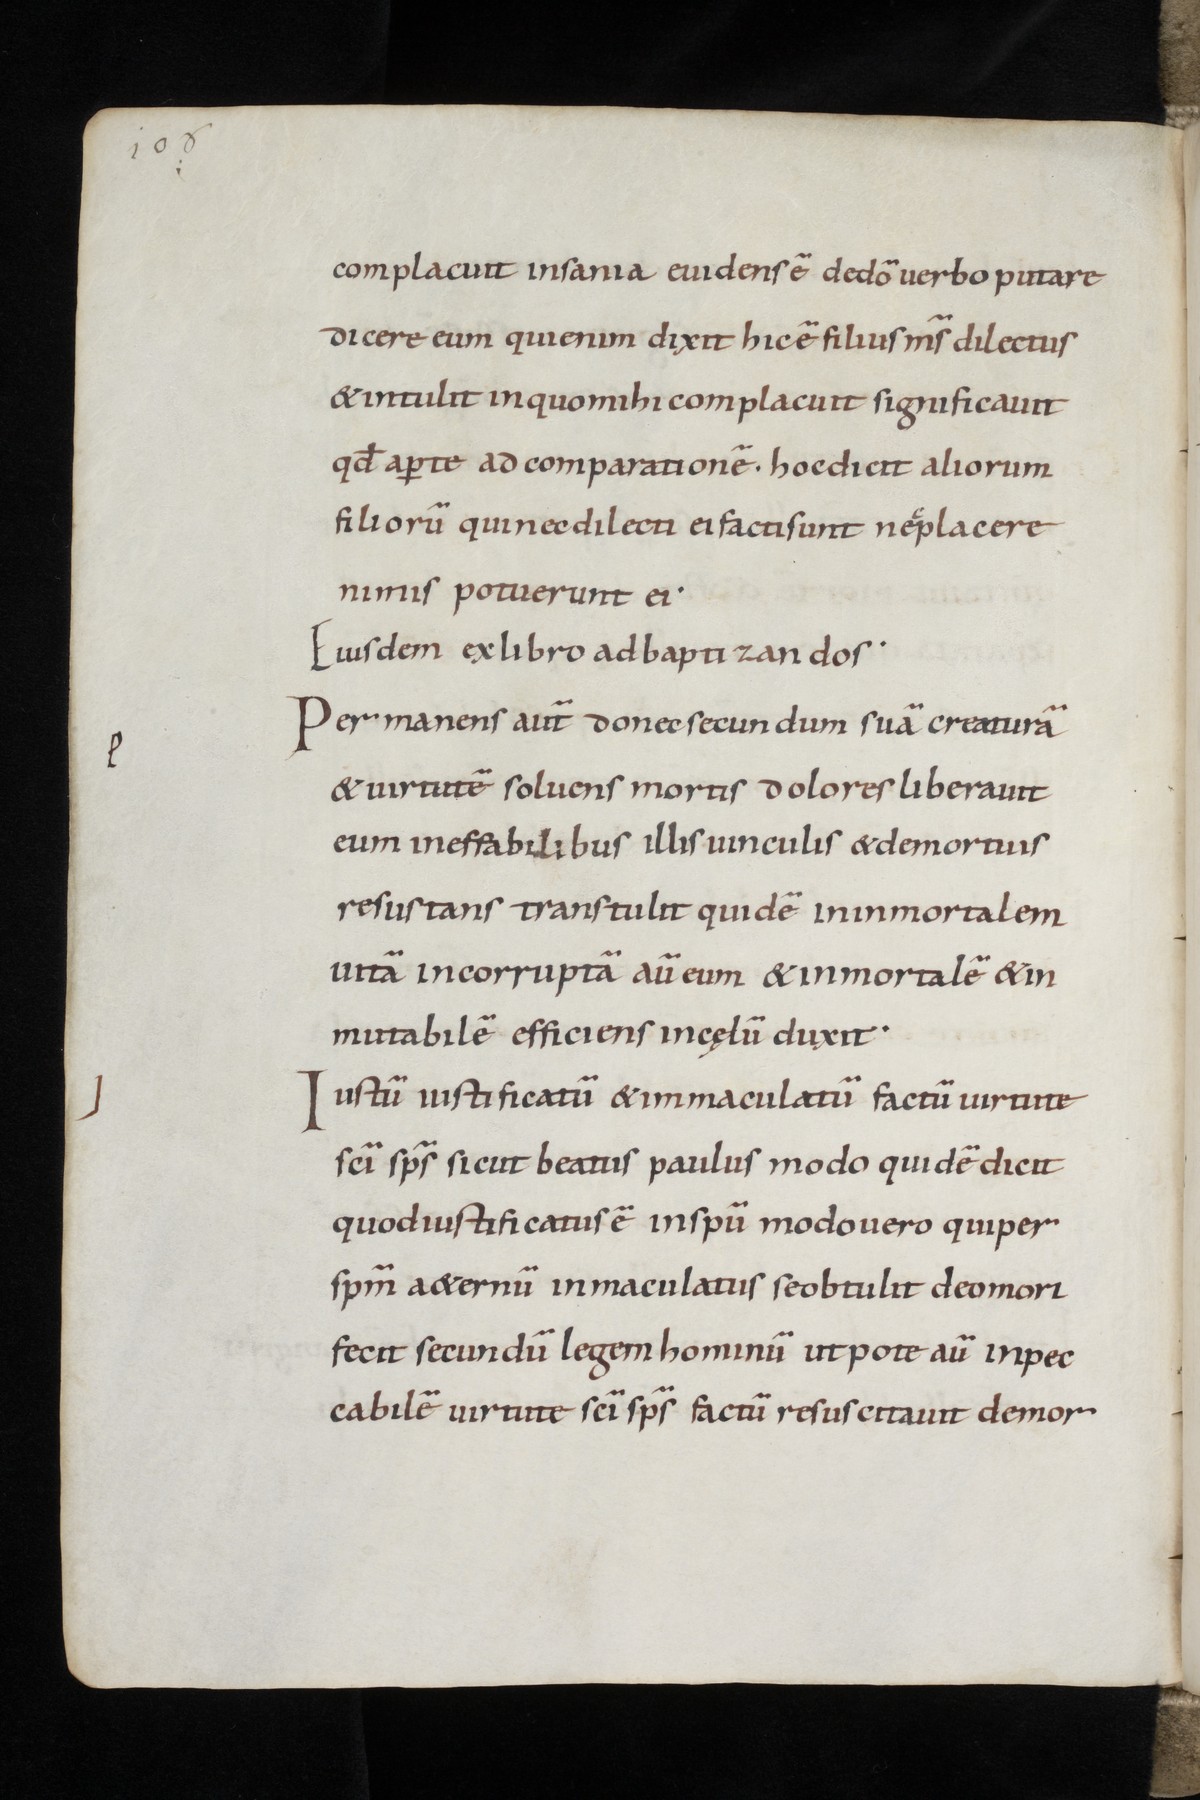 108
complacuit insania euidens ē dedō uerbo putare
dicere eum qui enim dixit hic ē filius m̄s dilectus
& intulit in quo mihi complacuit significauit
qđ aꝑte ad comparationē. hoc dicit aliorum
filiorū qui nec dilecti ei facti sunt nē placere
nimis potuerunt ei.
Eiusdem ex libro ad baptizandos.
Permanens aut̄ donec secundum suā creaturā
e
& uirtutē soluens mortis dolores liberauit
eum ineffabilibus illis uinculis & demortuis
resustans transtulit quidē in inmortalem
uitā incorruptā aū eum & inmortalē & in
mutabilē efficiens in cęlū duxit.
J
Iustū iustificatū & immaculatū factū uirtute
sc̄i sp̄s sicut beatus paulus modo quidē dicit
quod iustificatus ē in spū modo uero qui per
spm̄ a&ernū inmaculatus se obtulit deo mori
fecit secundū legem hominū ut pote aū inpec
cabilē uirtute sc̄i sp̄s factū resuscitauit demor